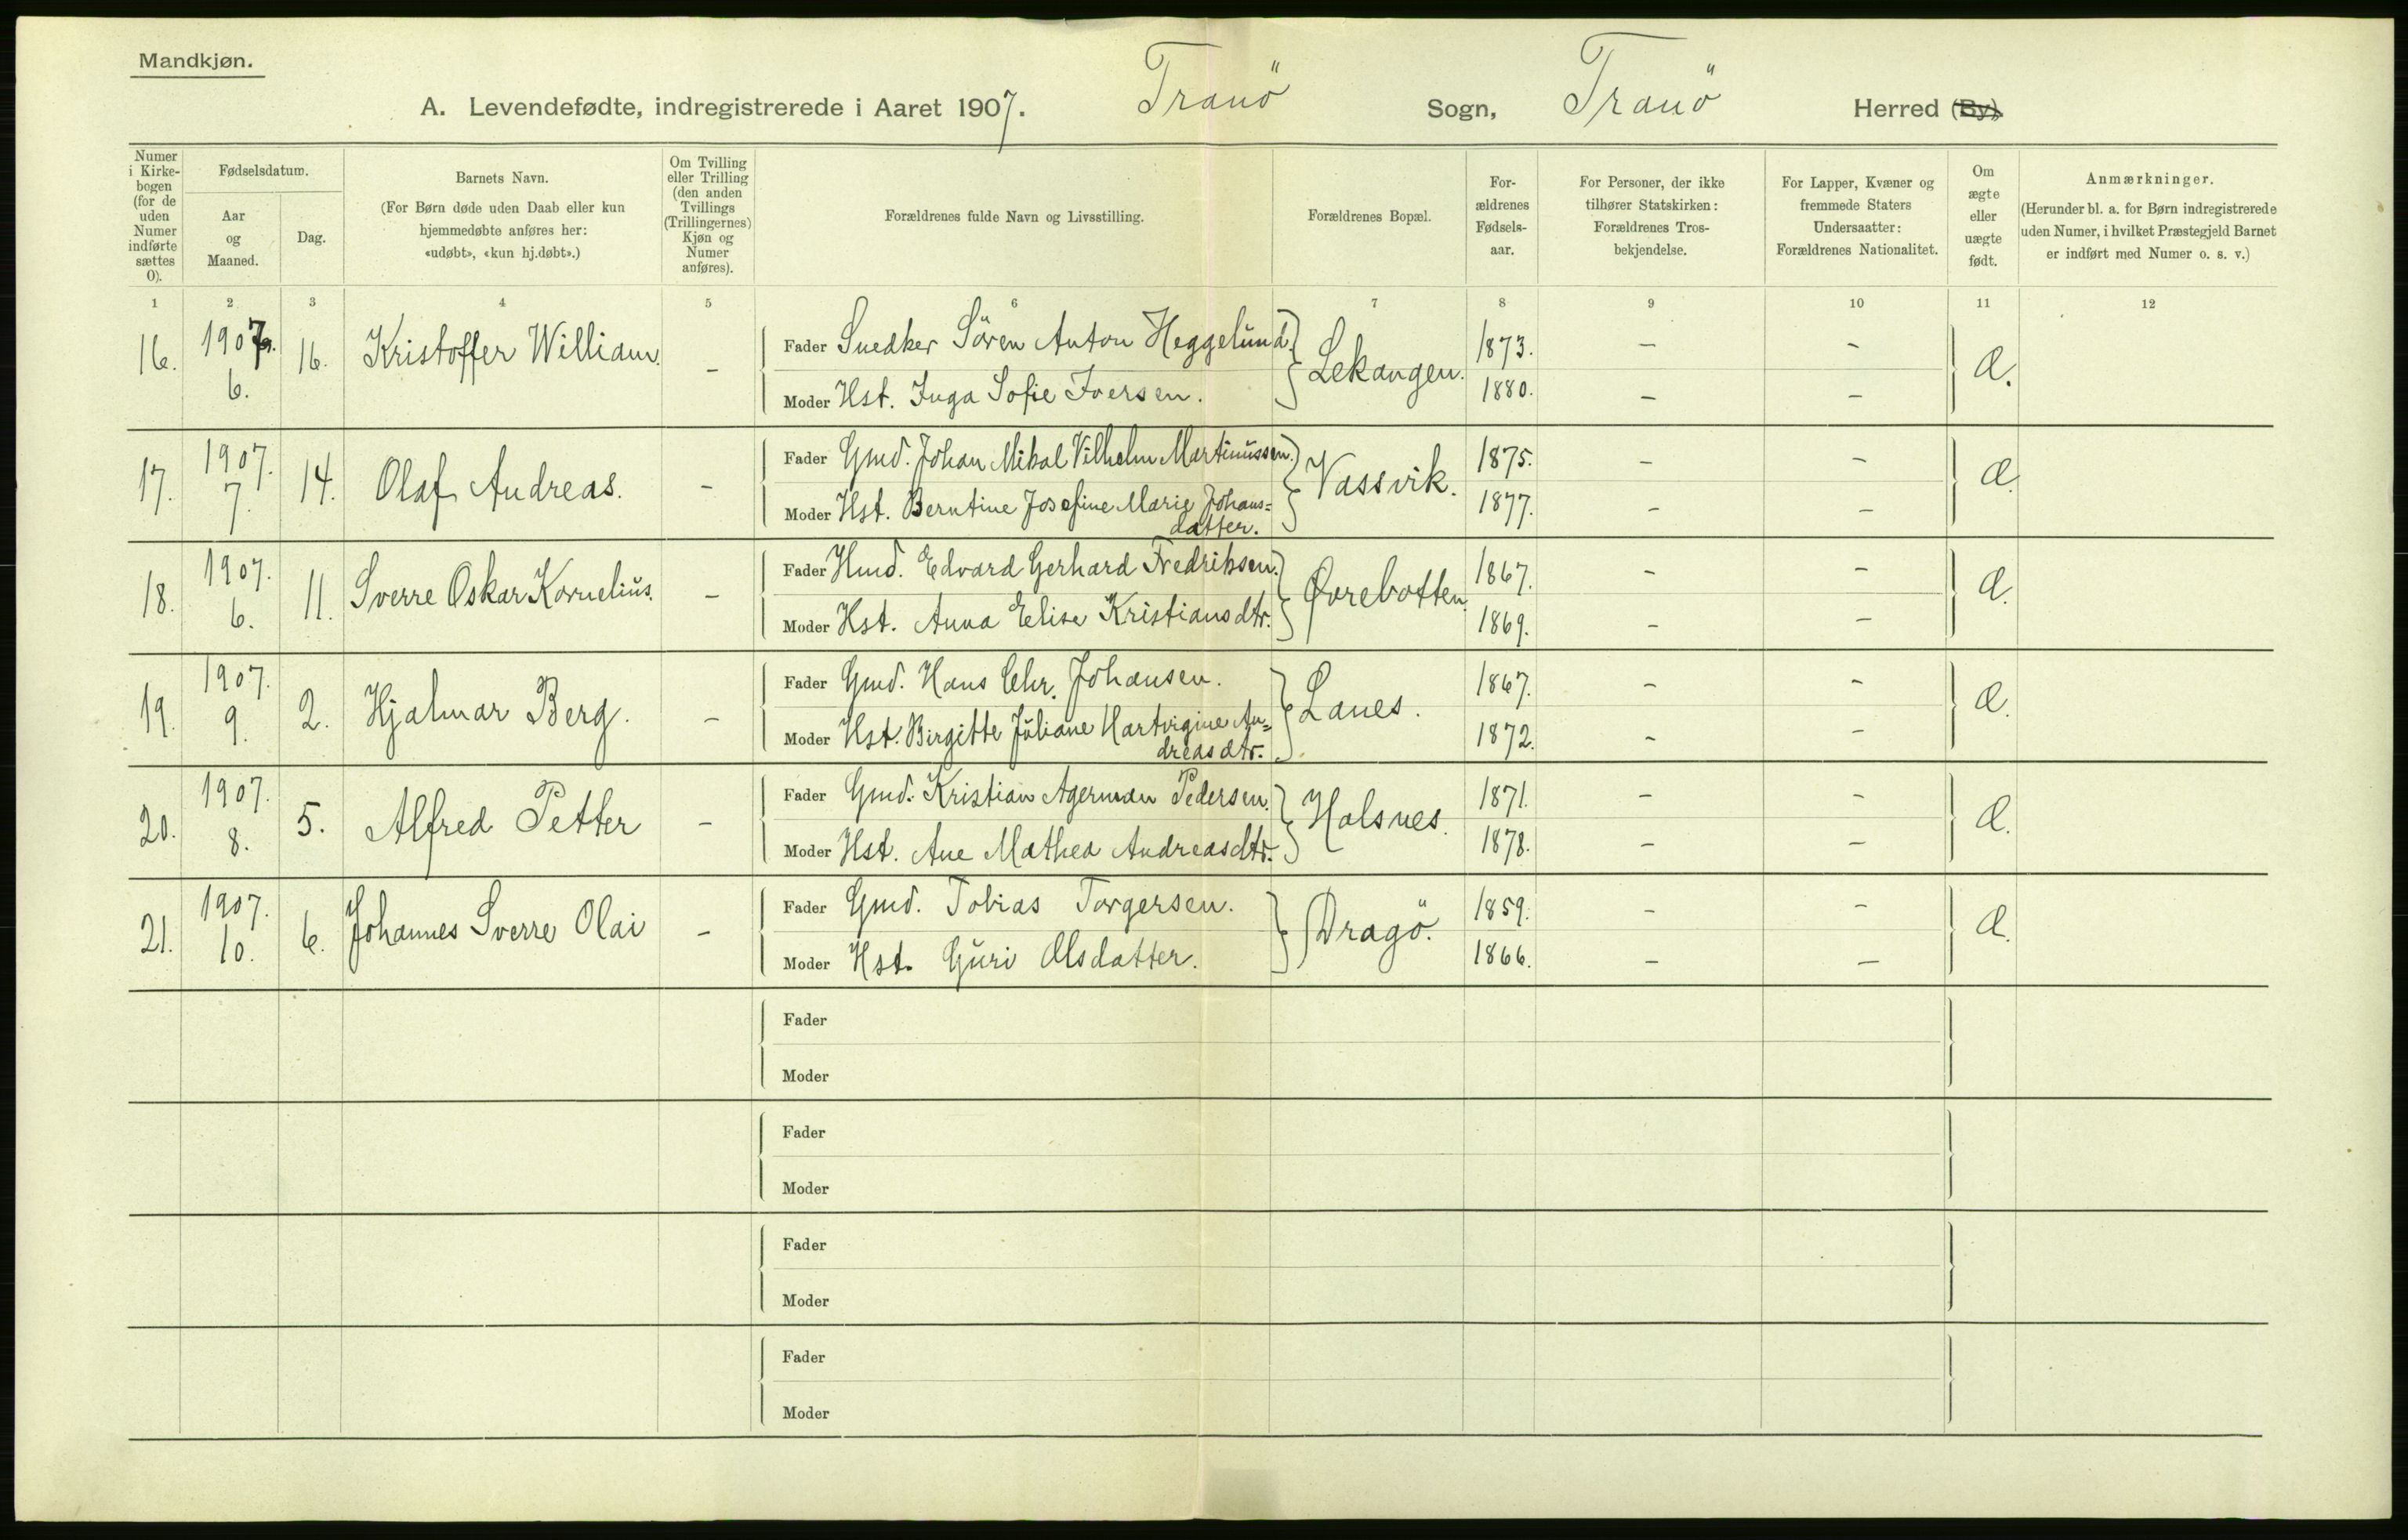 Mandkjøn.
A. Levendefødte, indregistrerede i Aaret 1907. Tranö Sogn, Tranö Herred (By).
Numer i Kirkebogen (for de uden Numer indførte sættes 0).
Fødselsdatum.
Aar og Maaned.
Dag.
Barnets Navn.
(For Børn døde uden Daab eller kun hjemmedøbte anføres her: «udøbt», «kun hj.døbt».)
Om Tvilling eller Trilling (den anden Tvillings (Trillingernes) Kjøn og Numer anføres).
Forældrenes fulde Navn og Livsstilling.
Forældrenes Bopæl.
For-ældrenes Fødsels-aar.
For Personer, der ikke tilhører Statskirken: Forældrenes Tros-bekjendelse.
For Lapper, Kvæner og fremmede Staters Undersaatter: Forældrenes Nationalitet.
Om ægte eller uægte født.
Anmærkninger.
(Herunder bl. a. for Børn indregistrerede uden Numer, i hvilket Præstegjeld Barnet er indført med Numer o. s. v.)
1 2 3 4 5 6 7 8 9 10 11 12
16. 1907. 6. 16. Kristoffer William. –
Fader Snedker Sören Anton Heggelund. Lekangen. 1873. – –
Moder Hst. Inga Sofie Iversen. 1880. – –
17. 1907. 7. 14. Olaf Andreas. –
Fader Gmd. Johan Mikal Vilhelm Martinussen. Vassvik. 1875. – –
Moder Hst. Berntine Josefine Marie Johans=
datter. 1877. – –
18. 1907. 6. 11. Sverre Oskar Kornelius. –
Fader Hmd. Edvard Gerhard Fredriksen. Øvrebotten. 1867. – –
Moder Hst. Anna Elise Kristiansdtr. 1869. – –
19. 1907. 9. 2. Hjalmar Berg. –
Fader Gmd. Hans Chr. Johansen. Lanes. 1867. – –
Moder Hst. Birgitte Juliane Hartvigine An=
dreasdtr. 1872. – –
20. 1907. 8. 5. Alfred Petter –
Fader Gmd. Kristian Agerman Pedersen. Holsnes. 1871. – –
Moder Hst. Ane Mathea Andreasdtr. 1878. – –
21. 1907. 10. 6. Johannes Sverre Olai –
Fader Gmd. Tobias Torgersen. Dragö. 1859. – –
Moder Hst. Guri Olsdatter. 1866. – –
Fader
Moder
Fader
Moder
Fader
Moder
Fader
Moder